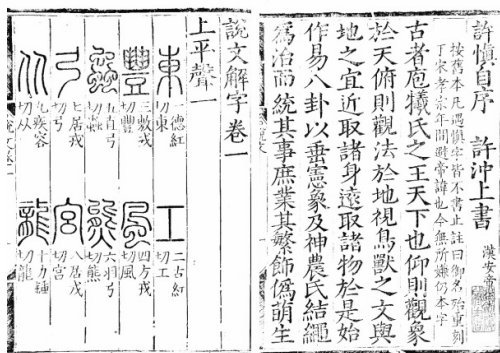 許慎自序 許沖上書
按舊本凡遇慎字皆不書止註曰御名殆重刻
丁宋孝宗年間避帝諱也今無所嫌仍本字
漢安帝
古者庖犧氏之王天下也仰則觀象
於天俯則觀法於地視鳥獸之文與
地之宜近取諸身遠取諸物於是始
作易八卦以垂憲象及神農氏結繩
爲治而統其事庶業其繁飾僞萌生
說文解字卷一
上平聲一
東 一德紅切東 工 二古紅切工
豐 三敷戎切豐 風 四方戎切風
蟲 五直弓切蟲 熊 六羽弓切熊
弓 七居戎切弓 宮 八居戎切宮
从 九疾容切从 龍 十力鍾切龍